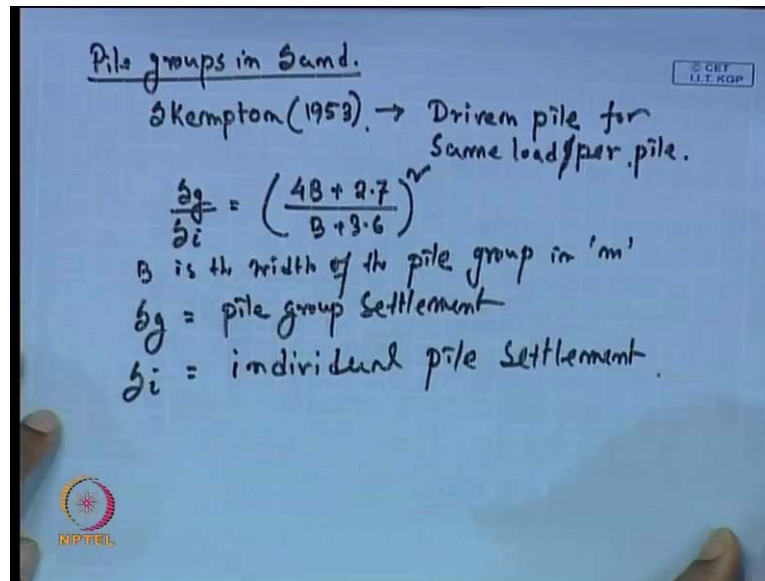 Pile groups in Sand.
© CET
I.I.T. KGP
Skempton (1953). → Driven pile for
Same load/per pile.
Sg/Si = ((4B + 2.7)/(B + 3.6))²
B is the width of the pile group in 'm'
Sg = pile group Settlement
Si = individual pile Settlement.
NPTEL